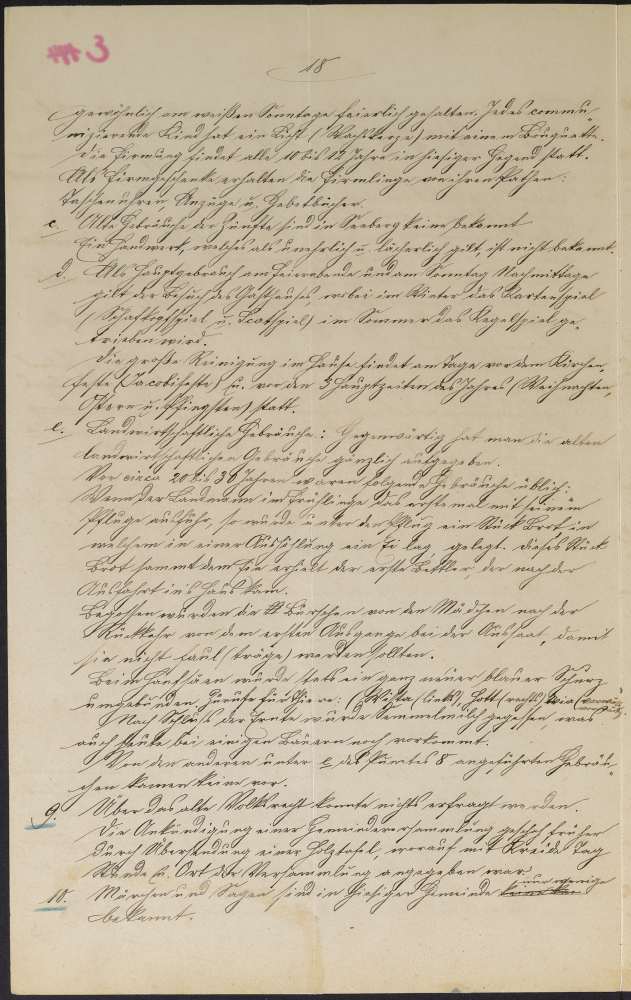 18
gewöhnlich am weißen Sonntage feierlich gehalten. Jedes commu-
nizierende Kind hat ein Licht (Wachskerze) mit einem Bouquette.
Die Firmung findet alle 10 bis 12 Jahre in hiesiger Gegend statt.
Als Firmgeschenke erhalten die Firmlinge von ihren Pathen:
Taschenuhren, Anzüge u. Gebetbücher.
c. Alte Gebräuche der Zünfte sind in Seeberg keine bekannt
Ein Handwerk, welches als unehrlich u. lächerlich gilt, ist nicht bekannt.
d. Als Hauptgebrauch am Feierabende und am Sonntag Nachmittage
gilt der Besuch des Gasthauses, wobei im Winter das Kartenspiel
(Schafkopfspiel u. Scatspiel) im Sommer das Kegelspiel ge-
trieben wird.
Die große Reinigung im Hause findet am Tage vor dem Kirchen-
feste (Jacobifeste) u. vor den 3 Hauptzeiten des Jahres (Weihnachten,
Ostern u. Pfingsten) statt.
e. Landwirtschaftliche Gebräuche: Gegenwärtig hat man die alten
landwirtschaftlichen Gebräuche gänzlich aufgegeben.
Vor circa 20 bis 30 Jahren waren folgende Gebräuche üblich:
Wenn der Landmann im Frühlinge das erstemal mit seinem
Pfluge ausfuhr, so wurde unter den Pflug ein Stück Brot in
welchem in einer Aushöhlung ein Ei lag, gelegt. Dieses Stück
Brot sammt dem Eie erhielt der erste Bettler, der nach der
Ausfahrt ins Haus kam.
Begossen wurden die Burschen von den Mädchen nach der
Rückkehr von dem ersten Ausgange bei der Aussaat, damit
sie nicht faul (träge) werden sollten.
Beim Hanfsäen wurde stets ein ganz neuer blauer Schurz
umgebunden. Zurufe für Thiere: (Wista (links), Hott (rechts) wia
Nach Schluß der Ernte wurde Semmelmilch gegessen, was
auch heute bei einigen Bauern noch vorkommt.
Von den anderen unter e des Punktes 8 angeführten Gebräu-
chen kamen keine vor.
9. Über das alte Volksrecht konnte nichts erfragt werden.
Die Ankündigung einer Gemeindeversammlung geschah früher
durch Übersendung einer Holztafel, worauf mit Kreide Tag
Stunde u. Ort der Versammlung angegeben war.
10. Märchen und Sagen sind in hiesiger Gemeinde nur wenige
bekannt.